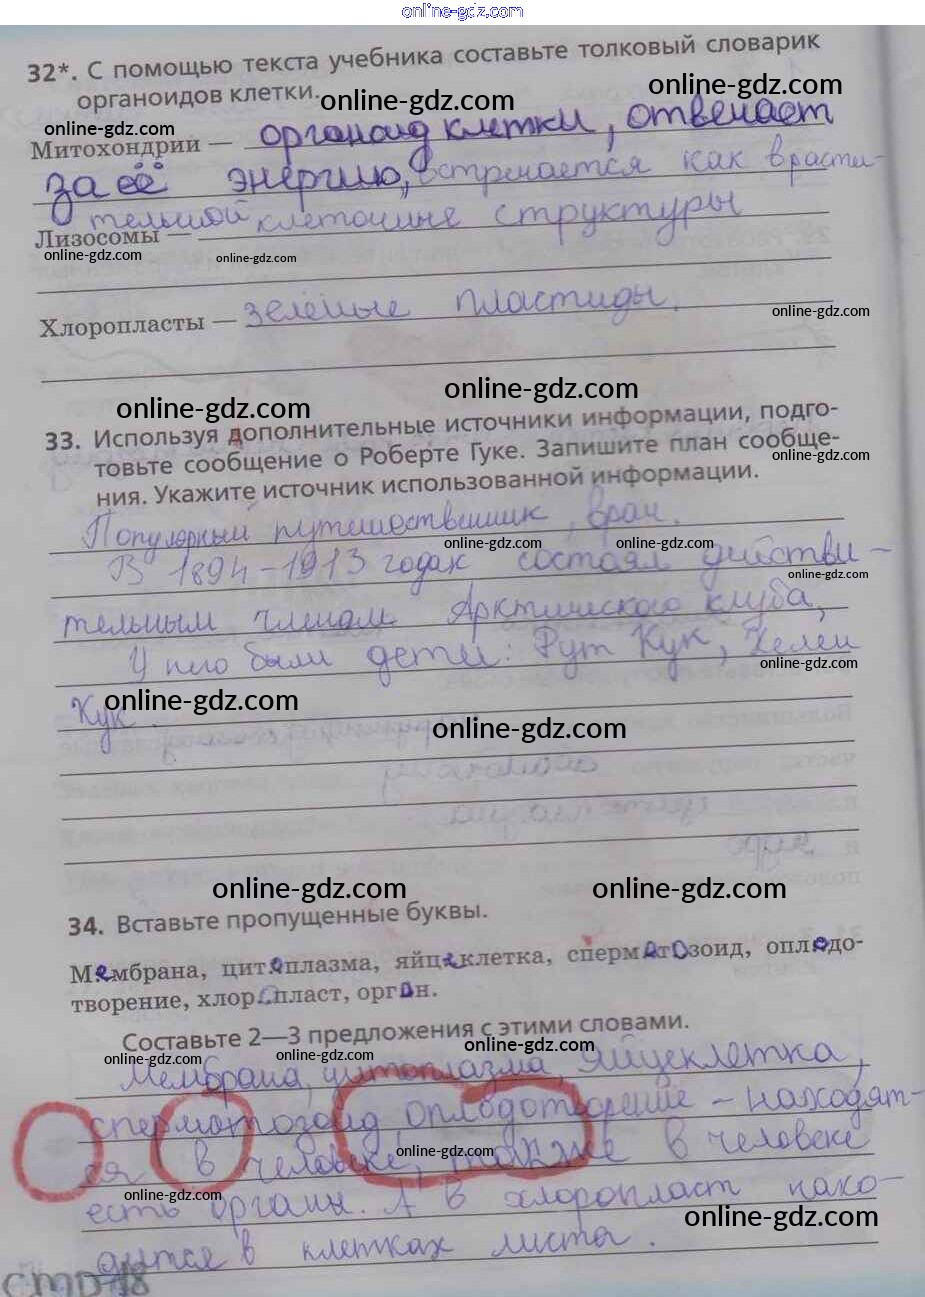 online-gdz.com
32*. С помощью текста учебника составьте толковый словарик
органоидов клетки.
online-gdz.com
online-gdz.com
online-gdz.com
Митохондрии — органоид клетки, отвечает
за её энергию, встречается как в расти-
тельной клеточные структуры
Лизосомы —
online-gdz.com
online-gdz.com
Хлоропласты — зелёные пластиды.
online-gdz.com
online-gdz.com
online-gdz.com
33. Используя дополнительные источники информации, подго-
товьте сообщение о Роберте Гуке. Запишите план сообще-
online-gdz.com
ния. Укажите источник использованной информации.
Популярный путешественник, врач.
online-gdz.com
online-gdz.com
В 1894-1913 годах состоял действи-
online-gdz.com
тельным членом Арктического клуба,
У него были дети: Рут Кук, Хелен
online-gdz.com
Кук.
online-gdz.com
online-gdz.com
online-gdz.com
online-gdz.com
34. Вставьте пропущенные буквы.
Мембрана, цитоплазма, яйцеклетка, сперматозоид, оплодо-
творение, хлоропласт, орган.
Составьте 2—3 предложения с этими словами.
online-gdz.com
online-gdz.com
online-gdz.com
Мембрана, цитоплазма, яйцеклетка,
сперматозоид, оплодотворение - находят-
ся в человеке, также в человеке
online-gdz.com
есть органы. А в хлоропласт нахо-
online-gdz.com
online-gdz.com
дится в клетках листа.